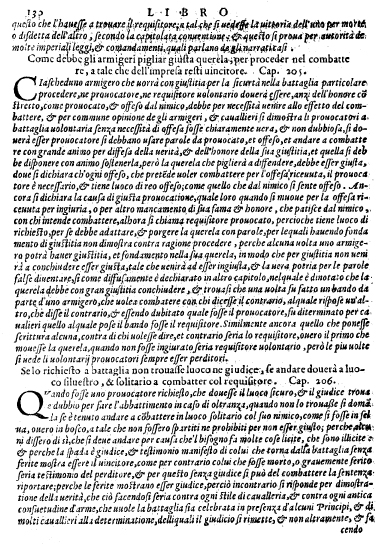 130 LIBRO
quello che l'hauesse a trouare il requisitore; a tal che si uedesse la uittoria dell'uno per morte,
o disdetta dell'altro, secondo la capitolata conuentione; & questo si proua per autorità de
molte imperiali leggi, & comandamenti, quali parlano de gli narratiui.
Come debbe gli armigeri pigliar giusta querela; per proceder nel combatte
re, a tale che dell'impresa resti uincitore. Cap. 205.
Ciascheduno armigero che uorrà con giustitia per la sicurtà nella battaglia particolare
procedere, ne prouocatore, ne requisitore uolontario douerà essere, anzi dell'honor co
stretto, come prouocato, & offeso dal nimico, debbe per necessità uenire allo effetto del com-
battere, & per commune opinione de gli armigeri, & cauallieri si dimostra li prouocatori a
battaglia uolontaria senza necessità di offesa fosse chiaramente uera, & non dubbiosa, si do-
uerà esser prouocatore si debbano usare parole da prouocato, et offeso, et andare a combatte
re con grande animo per diffesa della uerità, & dell'honore della sua giustitia, et quella si deb
be disponere con animo sostenerla, però la querela che piglierà a diffendere, debbe esser giusta,
doue si dichiara ch'ogni offeso, che pretēde uoler combattere per l'offesa riceuuta, il prouoca
tore è necessario, & tiene luoco di reo offeso; come quello che dal nimico si sente offeso. An-
cora si dichiara la causa di giusta prouocatione, quale loro quando si muoue per la offesa ri-
ceuuta per ingiuria, o per altro mancamento di sua fama & honore, che patisse dal nimico,
con chi intende combattere, alhora si chiama requisitore prouocato, percioche tiene luoco di
richiesto, per se debbe adattare, & porgere la querela con parole, per lequali hauendo fonda
mento di giustitia non dimostra contra ragione procedere, perche alcuna uolta uno armige-
ro potrà hauer giustitia, et fondamento nella sua querela, in modo che per giustitia non ueni
rà a conchiudere esser giusta, tale che uenirà ad esser ingiusta, & la uera potria per le parole
false diuentare, si come diffusamente è dechiarato in altro capitolo, nelquale è dimotato che la
querela debbe con gran giustitia conchiudere, & trouasi che una uolta fu fatto un bando da
parte d'uno armigero, che uolea combatere con chi dicesse il contrario, al quale rispose un'al-
tro, che disse il contrario, & essendo dubitato quale fosse il prouocatore, fu diterminato per ca
uallieri quello al quale pose il bando fosse il requisitore. Similmente ancora quello che ponesse
scrittura alcuna, contra di chi uolesse dire, et contrario seria lo requisitore, ouero il primo che
mouesse la querela, quando non fosse ingiurato seria requisitore uolontario, però le piu uolte
si uede li uolontarij prouocatori sempre esser perditori.
Se lo richiesto a battaglia non trouasse luoco ne giudice, se andare douerà a luo-
co siluestro, & solitario a combatter col requisitore. Cap. 206.
Quando fosse uno prouocatore richiesto, che douesse il luoco sicuro, & il giudice troua
re dubbio per fare l'abbattimento in caso di oltranza, quando non lo trouasse si doma
da se è tenuto andare a cōbattere in luoco solitario col suo nimico, come si fosse in sel
ua, ouero in bosco, a tale che non fossero spartiti ne prohibiti per non esser giusto, perche alcu
ni dissero di sì, che si deue andare per causa che'l bisogno fa molte cose licite, che sono illicite:
& perche la spada è giudice, & testimonio manifesto di colui che torna dalla battaglia senza
ferite mostra essere il uincitore, come per contrario colui che fosse morto, o grauemente ferito
seria testimonio del perditore, & per questo senza giudice si può del combattere la sentenza
riportare; perche le ferite mostrano esser giudice, però incontrario si risponde per dimostra-
tione della uerità, che ciò facendosi seria contra ogni stile di cauallaria, & contra ogni antica
consuetudine d'arme, che uuole la battaglia sia celebrata in presenza d'alcuni Principi, & di
molti cauallieri alla determinatione, delliquali il giudicio si rimette, & non altramente, & fa
cendo